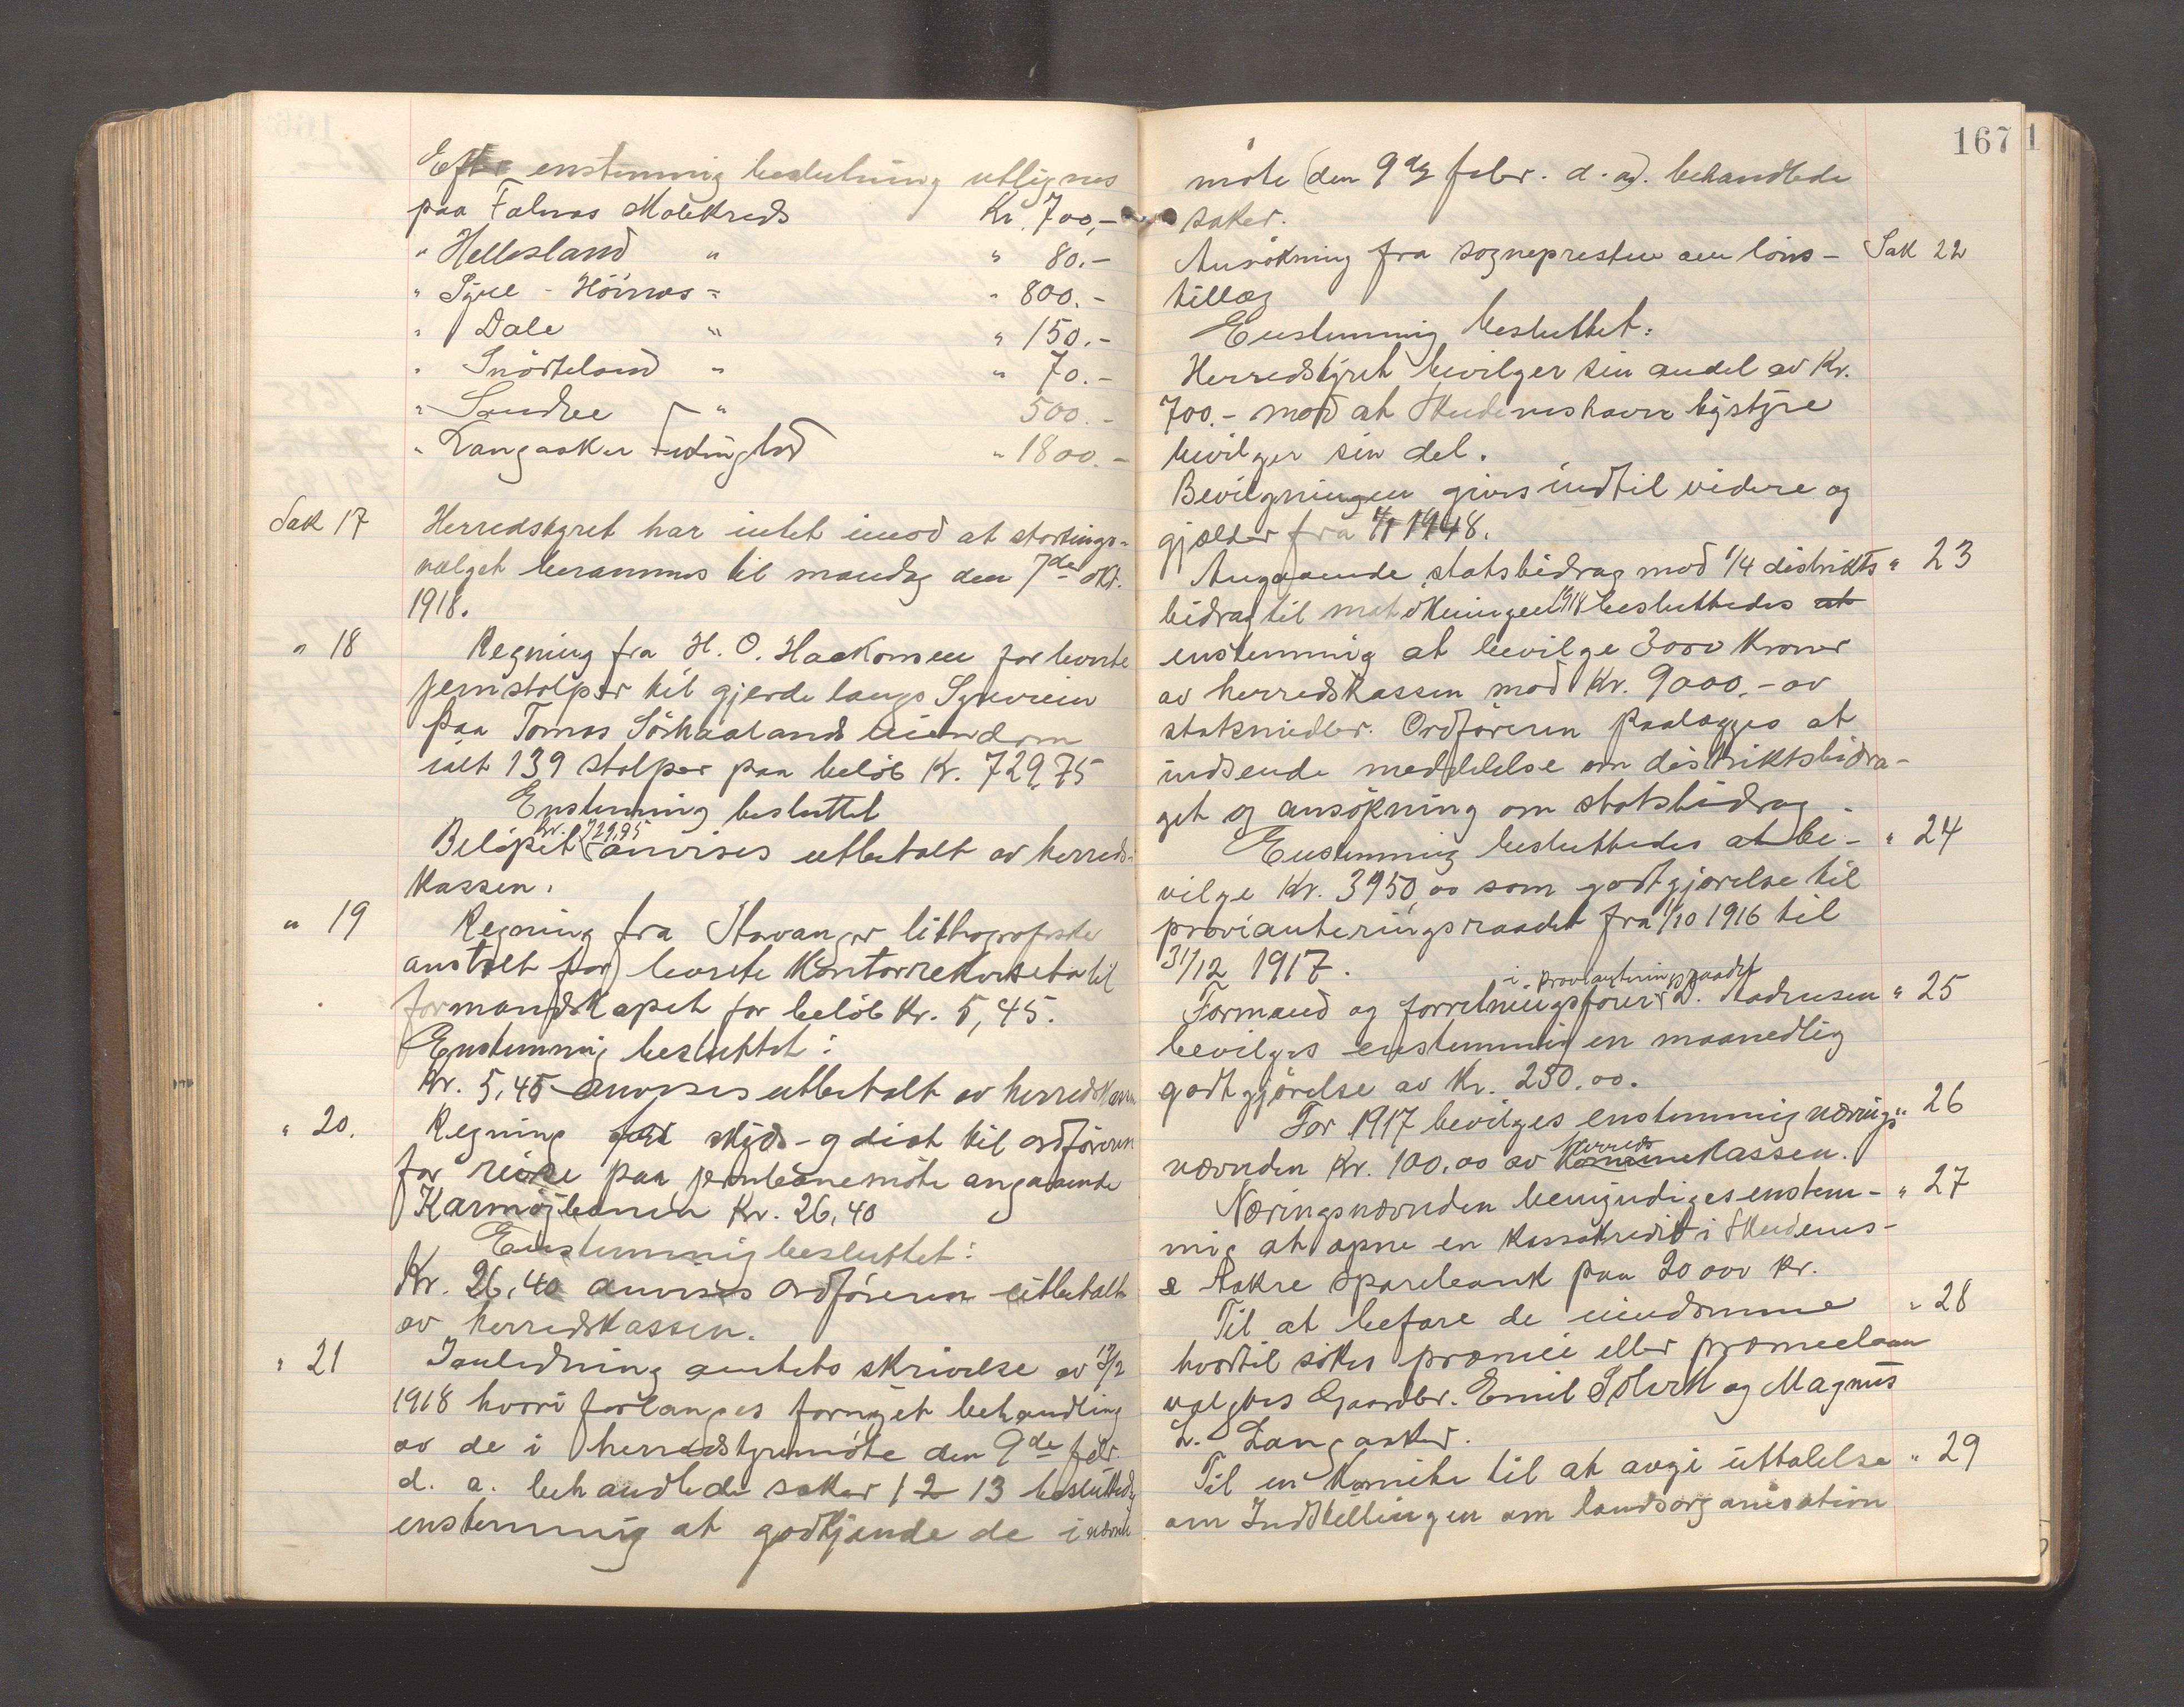 Efter enstemmig beslutning utlignes
paa Falnes Skolekreds Kr. 700,-
" Hellesland " " 80.-
" Syre - Höines " " 800.-
" Dale " " 150.-
" Snörteland " " 70.-
" Sandve " 500.-
" Langaaker " 1800.-
Sak 17 Herredstyret har intet imod at stortings-
valget berammes til mandag den 7de okt.
1918.
" 18 Regning fra H. O. Haakonsen for leverte
jernstolper til gjerde langs Syreveien
paa Tomas Sörhaalands eiendom
ialt 139 stolper paa beløb Kr. 729,75
Enstemmig besluttet
Beløpet Kr. 729,95 anvises utbetalt av herreds-
kassen.
" 19 Regning fra Stavanger lithografiske
anstalt for leverte Kontorrekvisita til
formandskapet for beløb Kr. 5,45.
Enstemmig besluttet:
Kr. 5,45 anvises utbetalt av herredskassen
" 20. Regning skyds- og diæt til ordføreren
for reise paa jernbanemöte angaaende
Karmöybanen Kr. 26,40
Enstemmig besluttet:
Kr. 26,40 anvises Ordføreren utbetalt
av herredskassen.
" 21 Ianledning amtets skrivelse av 13/2
1918 hvori forlanges fornyet behandling
av de i herredstyremöte den 9de febr.
d. a. behandlede saker 12 13 besluttedes
enstemmig at godkjende de i nævnte
167
1
möte (den 9de febr. d. a.) behandlede
saker.
Ansökning fra sognepresten om löns- Sak 22
tillæg
Enstemmig besluttet:
Herredstyret bevilger sin andel av Kr.
700.- mod at Skudeneshavn bystyre
bevilger sin del.
Bevilgningen gives indtil videre og
gjælder fra 1/1 1918.
Angaaende statsbidrag mod 1/4 distrikts " 23
bidrag til matökningen 1918 besluttedes at
enstemmig at bevilge 3000 Kroner
av herredskassen mod Kr. 9000,- av
statsmidler. Ordføreren paalægges at
indsende meddelelse om distriktsbidra-
get og ansökning om statsbidrag.
Enstemmig besluttedes at be- " 24
vilge Kr. 3950,00 som godtgjørelse til
provianteringsraadet fra 1/10 1916 til
31/12 1917.
i provianteringsraadet
Formand og forretningsförer L. Andreasen " 25
bevilges enstemmig en maanedlig
godtgjörelse av Kr. 250.00.
For 1917 bevilges enstemmig nærings- " 26
nævnden Kr. 100,00 av Kommune herredskassen.
Næringsnævnden bemyndiges enstem- " 27
mig at åpne en kassakredit i Skudenes-
& Aakre sparebank paa 20 000 kr.
Til at befare de eiendomme " 28
hvortil sökes præmie eller præmielaan
valgtes Gaardbr. Emil Silvik og Magnus
L. Langaaker.
Til en Komite til at avgi uttalelse " 29
om Indstillingen om landsorganisation